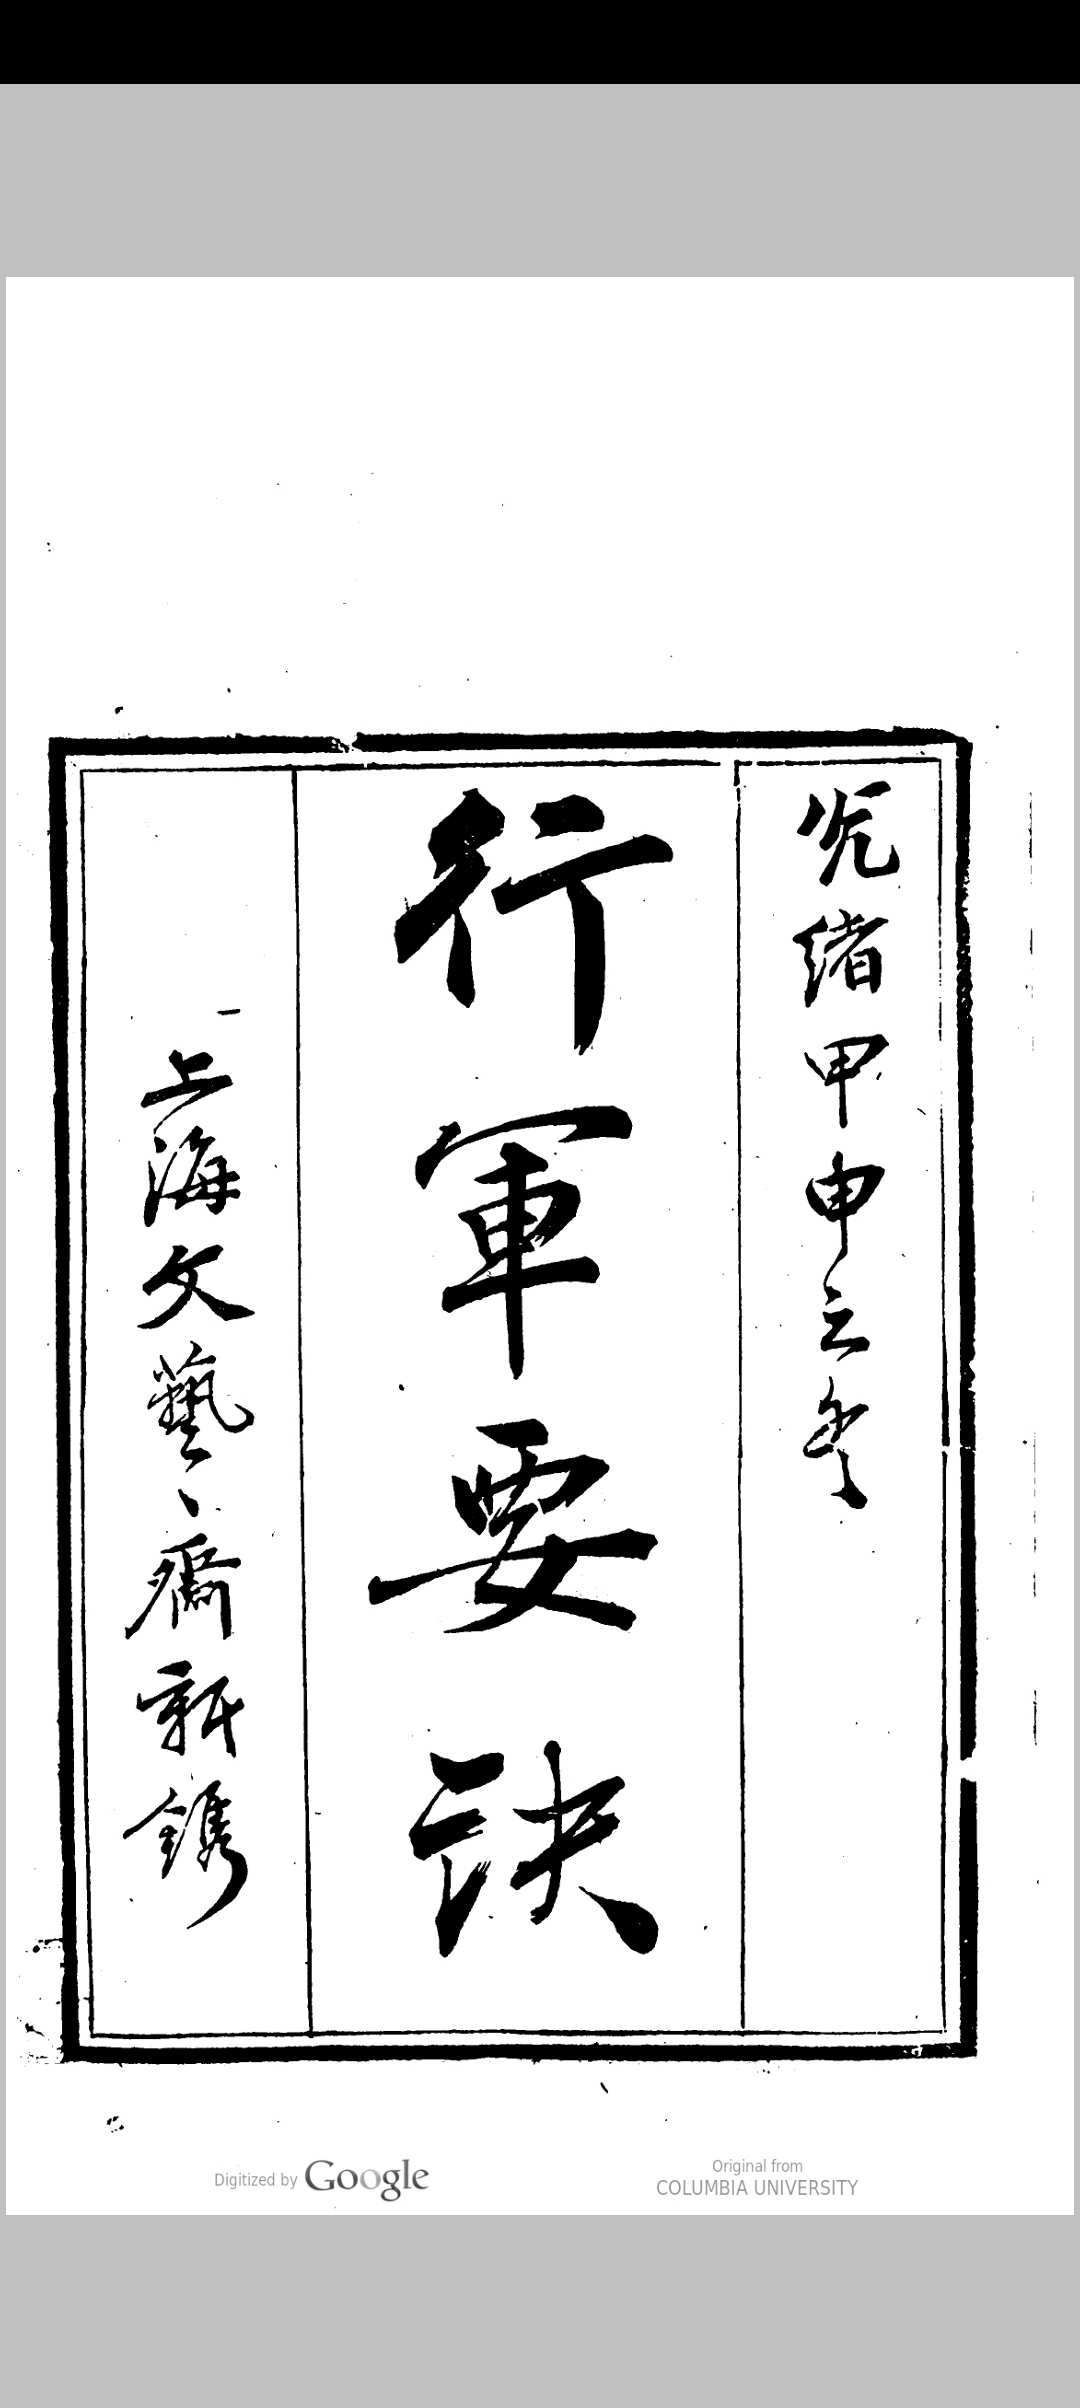 光緒甲申之冬
行軍要訣
上海文藝齋新鐫
Digitized by Google
Original from
COLUMBIA UNIVERSITY